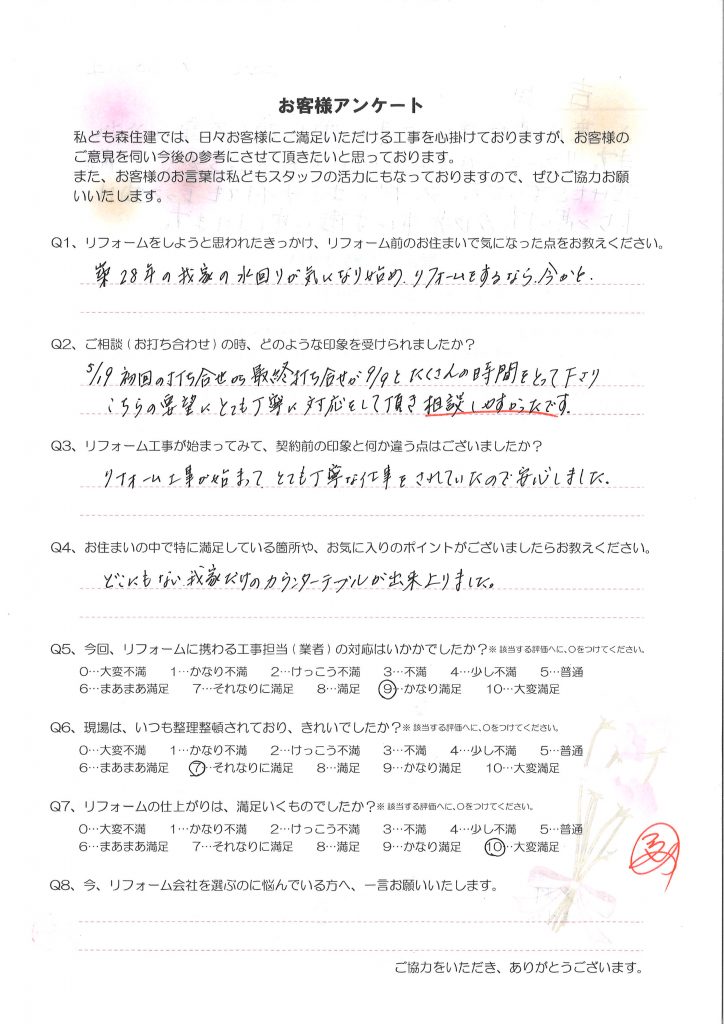 お客様アンケート
私ども森住建では、日々お客様にご満足いただける工事を心掛けておりますが、お客様の
ご意見を伺い今後の参考にさせて頂きたいと思っております。
また、お客様のお言葉は私どもスタッフの活力にもなっておりますので、ぜひご協力お願
いいたします。
Q1、リフォームをしようと思われたきっかけ、リフォーム前のお住まいで気になった点をお教えください。
築28年の我家の水回りが気になり始め、リフォームをするなら、今かと.
Q2、ご相談(お打ち合わせ)の時、どのような印象を受けられましたか?
5/19 初回の打ち合せから最終打ち合せが9/9とたくさんの時間をとって下さり
こちらの要望にとても丁寧に対応をして頂き相談しやすかったです.
Q3、リフォーム工事が始まってみて、契約前の印象と何か違う点はございましたか?
リフォーム工事が始まって、とても丁寧な仕事をされていたので安心しました.
Q4、お住まいの中で特に満足している箇所や、お気に入りのポイントがございましたらお教えください。
どこにもない我家だけのカウンターテーブルが出来上りました。
Q5、今回、リフォームに携わる工事担当(業者)の対応はいかがでしたか?※該当する評価へに、○をつけてください。
0…大変不満 1…かなり不満 2…けっこう不満 3…不満 4…少し不満 5…普通
6…まあまあ満足 7…それなりに満足 8…満足 9…かなり満足 10…大変満足
Q6、現場は、いつも整理整頓されており、きれいでしたか?※該当する評価へに、○をつけてください。
0…大変不満 1…かなり不満 2…けっこう不満 3…不満 4…少し不満 5…普通
6…まあまあ満足 7…それなりに満足 8…満足 9…かなり満足 10…大変満足
Q7、リフォームの仕上がりは、満足いくものでしたか?※該当する評価へに、○をつけてください。
0…大変不満 1…かなり不満 2…けっこう不満 3…不満 4…少し不満 5…普通
6…まあまあ満足 7…それなりに満足 8…満足 9…かなり満足 10…大変満足
Q8、今、リフォーム会社を選ぶのに悩んでいる方へ、一言お願いいたします。
ご協力をいただき、ありがとうございます。